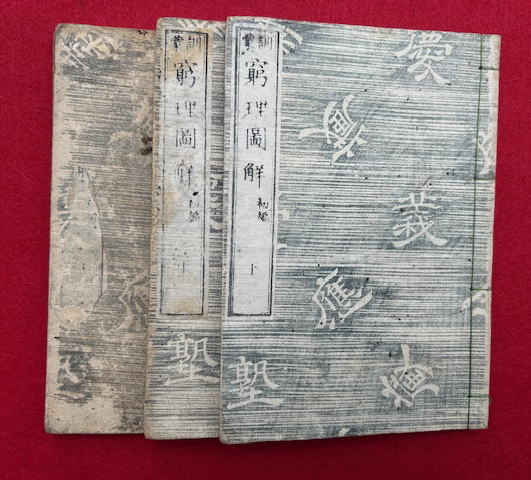 慶
義
應
塾
訓蒙
窮理圖解
初編
訓蒙
窮理圖解
初編
塾